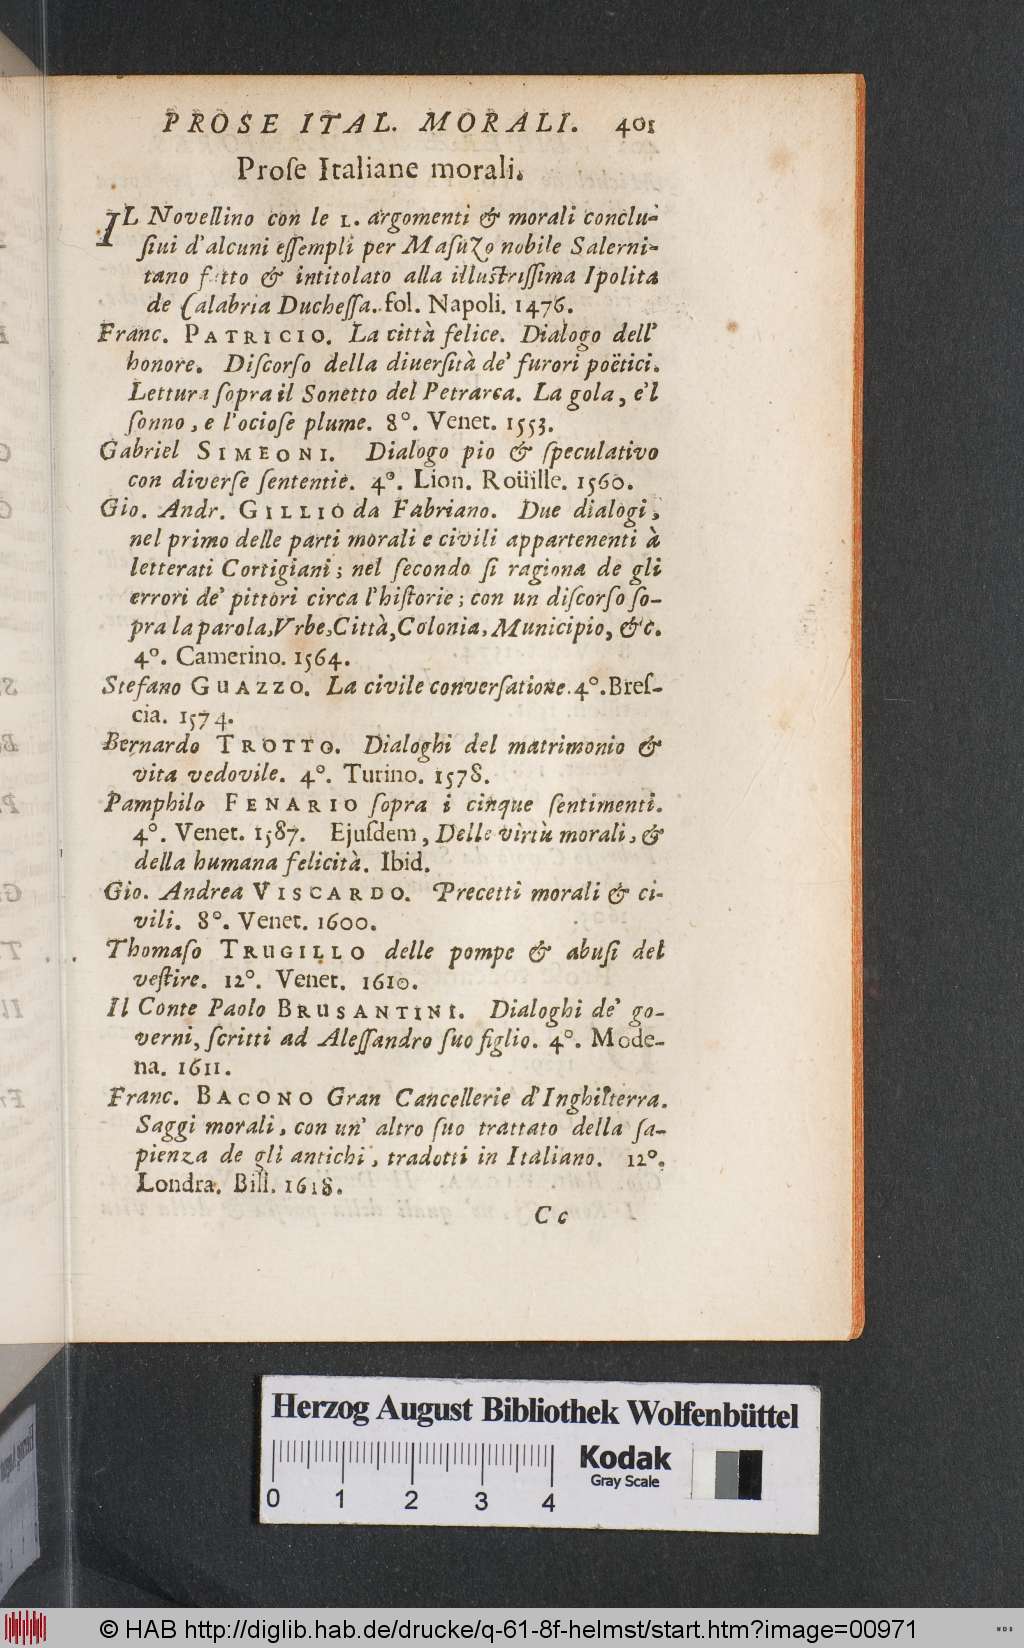 PROSE ITAL. MORALI. 401
Proſe Italiane morali.
IL Novellino con le L. argomenti & morali conclu-
ſiui d'alcuni eſſempli per Maſuzo nobile Salerni-
tano fatto & intitolato alla illuſtriſſima Ipolita
de Calabria Ducheſſa. fol. Napoli. 1476.
Franc. PATRICIO. La città felice. Dialogo dell'
honore. Diſcorſo della diuerſità de' furori poëtici.
Lettura ſopra il Sonetto del Petrarca. La gola, e'l
ſonno, e l'ocioſe plume. 8°. Venet. 1553.
Gabriel SIMEONI. Dialogo pio & ſpeculativo
con diverſe ſententie. 4°. Lion. Roüille. 1560.
Gio. Andr. GILLIO da Fabriano. Due dialogi,
nel primo delle parti morali e civili appartenenti à
letterati Cortigiani; nel ſecondo ſi ragiona de gli
errori de' pittori circa l'hiſtorie; con un diſcorſo ſo-
pra la parola, Vrbe, Città, Colonia, Municipio, &c.
4°. Camerino. 1564.
Stefano GUAZZO. La civile converſatione. 4°. Breſ-
cia. 1574.
Bernardo TROTTO. Dialoghi del matrimonio &
vita vedovile. 4°. Turino. 1578.
Pamphilo FENARIO ſopra i cinque ſentimenti.
4°. Venet. 1587. Ejuſdem, Delle virtù morali, &
della humana felicità. Ibid.
Gio. Andrea VISCARDO. Precetti morali & ci-
vili. 8°. Venet. 1600.
Thomaſo TRUGILLO delle pompe & abuſi del
veſtire. 12°. Venet. 1610.
Il Conte Paolo BRUSANTINI. Dialoghi de' go-
verni, ſcritti ad Aleſſandro ſuo figlio. 4°. Mode-
na. 1611.
Franc. BACONO Gran Cancellerie d'Inghilterra.
Saggi morali, con un' altro ſuo trattato della ſa-
pienza de gli antichi, tradotti in Italiano. 12°.
Londra. Bill. 1618.
Cc
Herzog August Bibliothek Wolfenbüttel
Kodak
Gray Scale
0 1 2 3 4
© HAB http://diglib.hab.de/drucke/q-61-8f-helmst/start.htm?image=00971